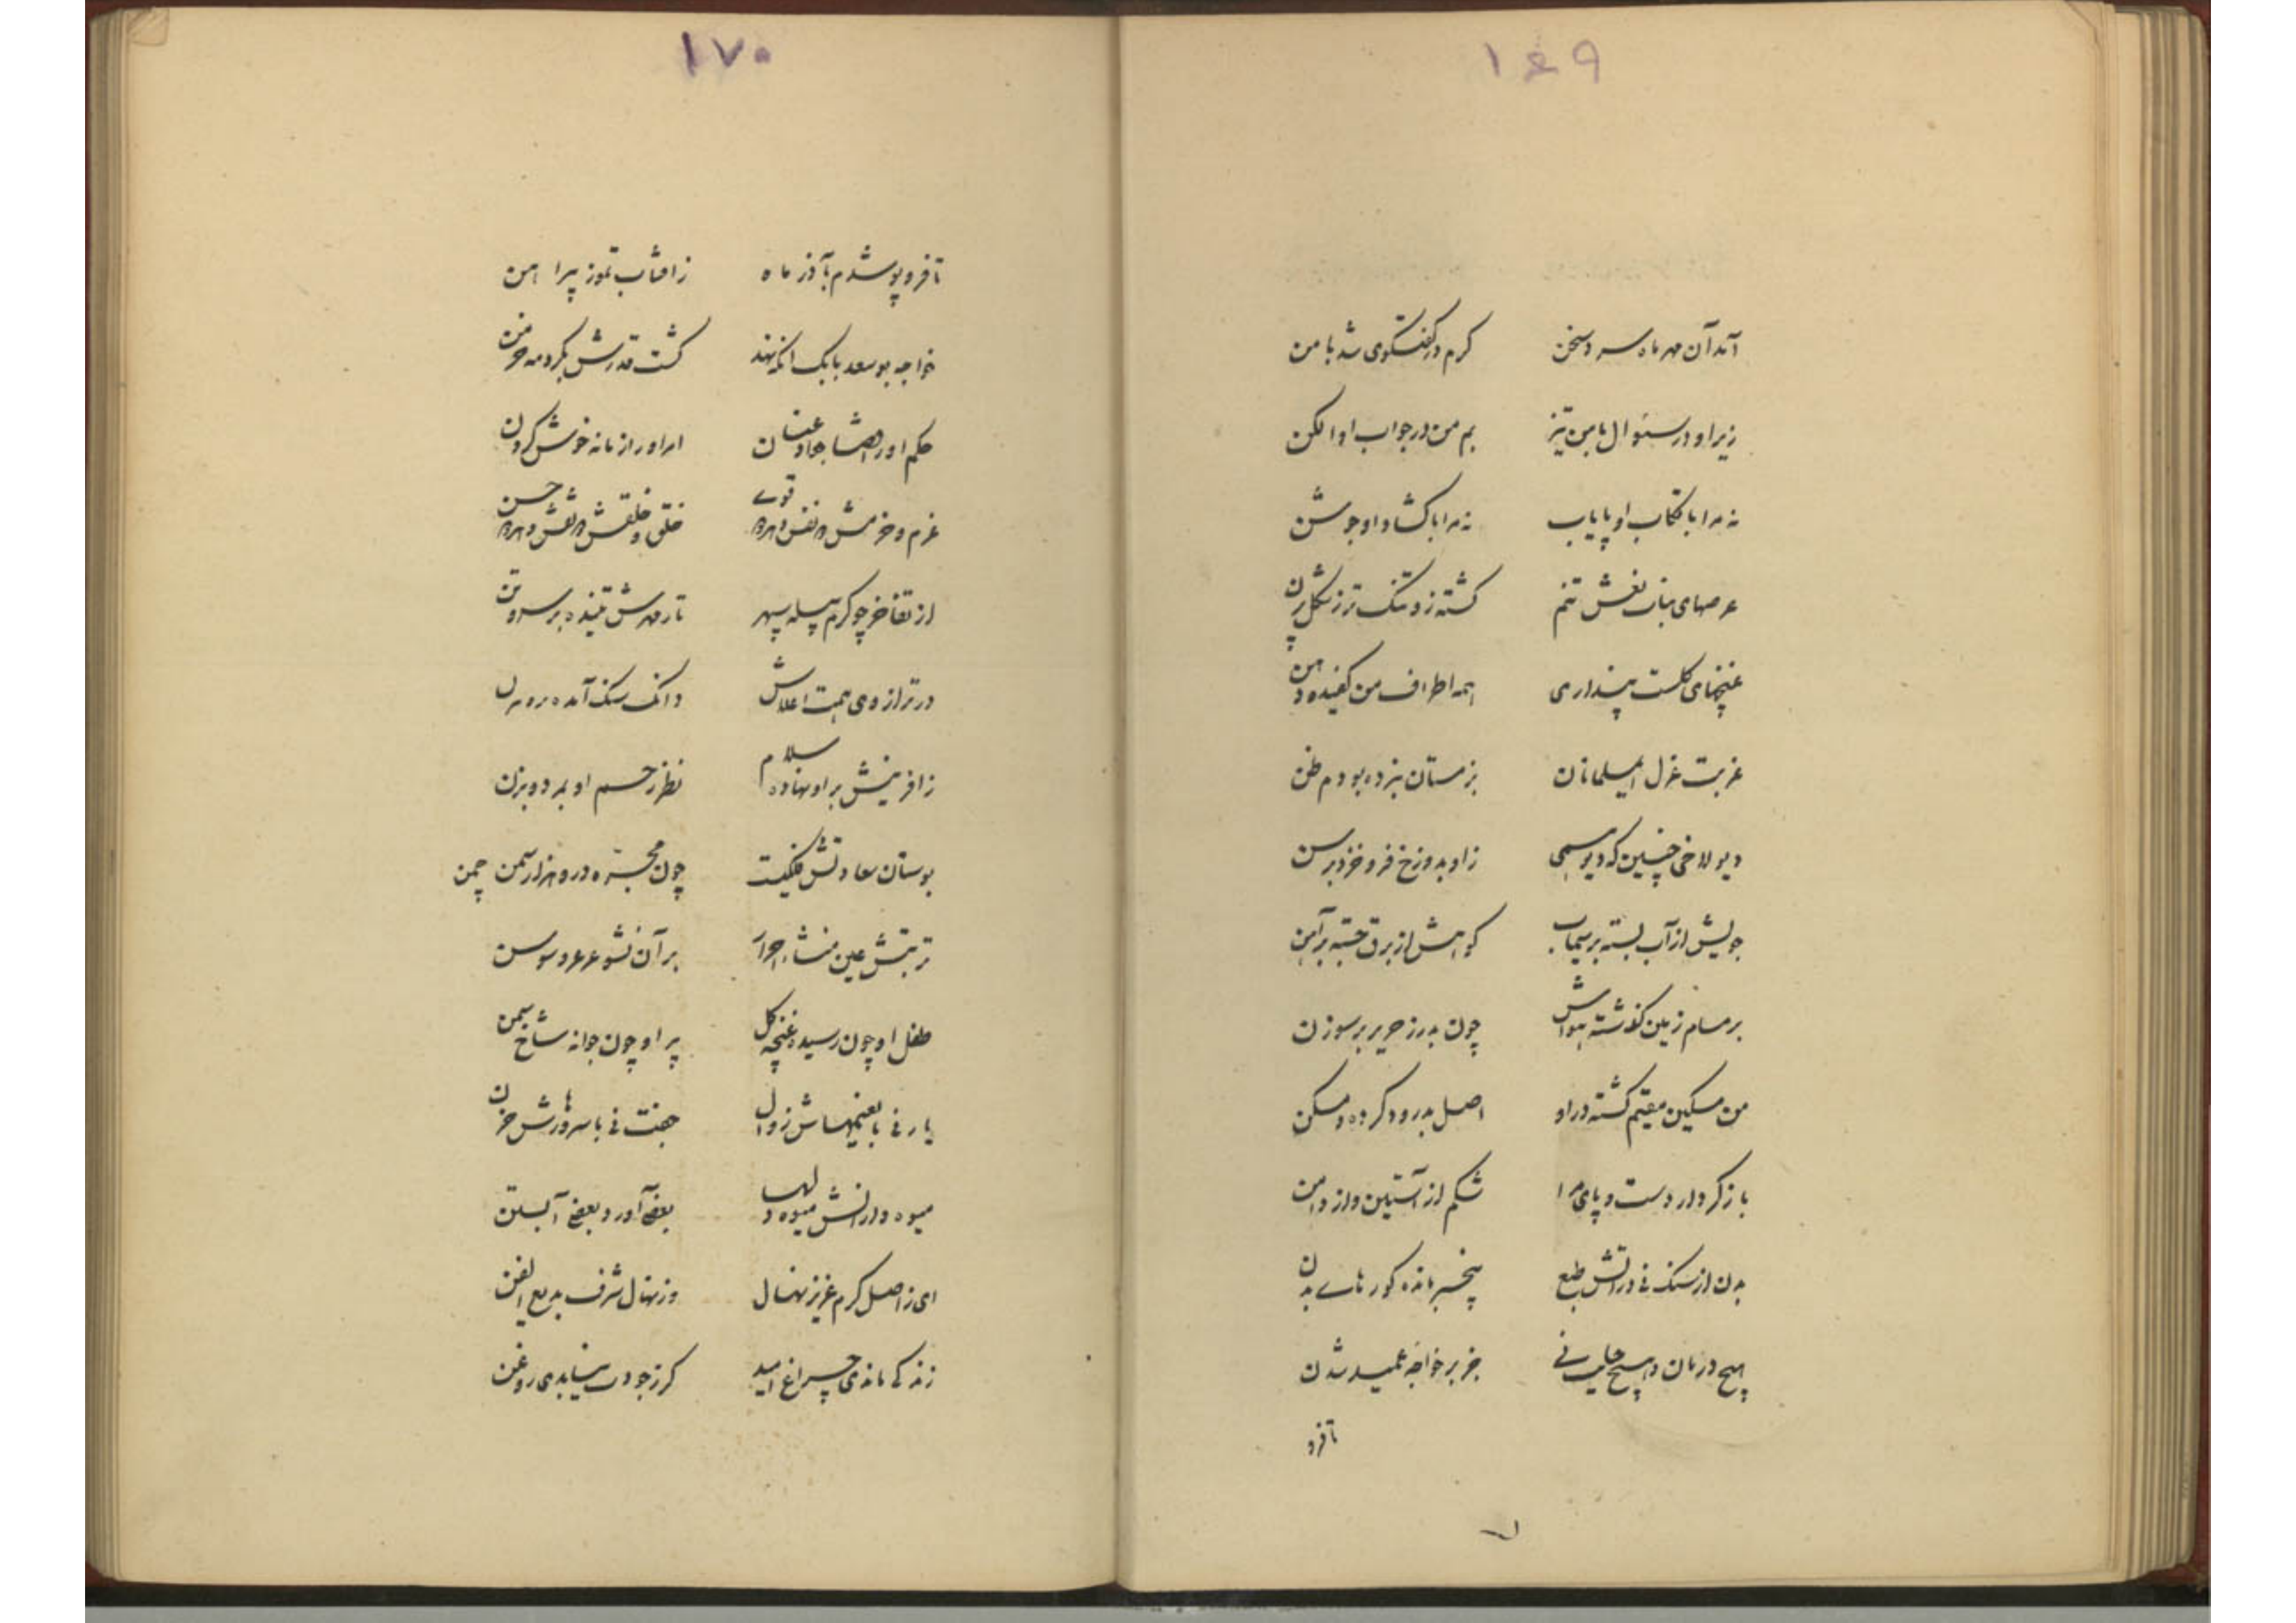 ۱۶۹
آمد آن مهر ماه سرد سخن گرم در گفتگوی شد با من
زیر او در سئوال با من تیز بم من در جواب او الکن
نه مرا با تکاب او پایاب نه مرا با گشاد او جوشن
عرصهای بنات نعش تنم گشته زو تنک تر ز شکل پرن
غنچهای گلست پنداری همه اطراف من کفیده دهن
غربت غزل المسلمانان بزمستان نبرده بودم ظن
دیو لاخی چنین که دیو همی زاو بدوزخ فرو خزد برسن
جویش از آب بسته پر سیماب کوهش از برق جسته پر آهن
بر مسام زمین گذشته هواش چون بدرز حریر بر سوزن
من مسکین مقیم گشته در او اصل بدرود کرده و مسکن
باز کردار دست و پای مرا شکم از آستین و از دامن
بدن از سنک نی در آتش طبع پنجسر مانده کور هاے بدن
هیچ درمان و هیچ حیلت نے جز بر خواجه عمید شدن
تا فرو
۱۷۰
تا فرو پوشدم بآذر ماه ز افتاب تموز پیراهن
خواجه بو سعد بابک آنکه نهند گشت قدرش بگرد مه خرمن
حکم او را قضا جواد عنان امر او را زمانه خوش گردن
عزم و حزمش در نفس و هر دو قوے خلق و خلقش در نقش و هر دو حسن
از تفاخر چو کرم پیله سپهر تار مهرش تنیده بر سر و تن
در ترازوی همت اعلاش دانک سنک آمده
زافرینش بر او نهاده سلام نظر رحم او بمرد و بزن
بوستان سعادتش فلکیت چون مجره در و هزار سمن چمن
تربتش عین منشاء احرار بر آن نشو عرعر و سوسن
طفل او چون رسیده غنچه گل پیر او چون جوانه شاخ سمن
یار نی با نعیمهاش زوال جفت نی با سرورهاش حزن
میوه دارانش میوه دلها بعضی آور و بعضی آبستن
ای ز اصل کرم عزیز نهال وز نهال شرف بدیع الفن
زنده کی ماندی چراغ امید گر ز جودت نیابدی روغن